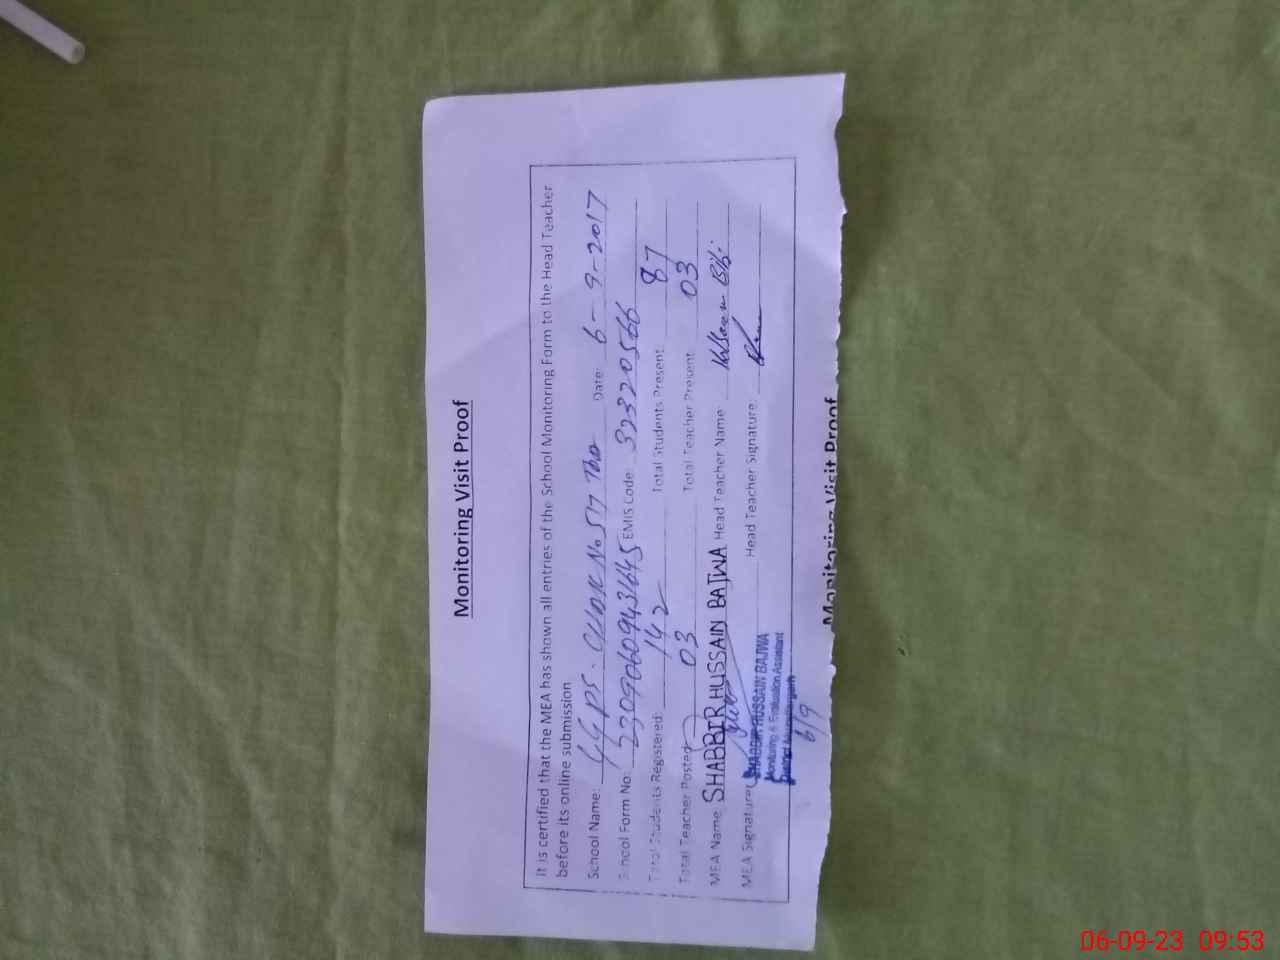 Monitoring Visit Proof
It is certified that the MEA has shown all entries of the School Monitoring Form to the Head Teacher
before its online submission
School Name: GGPS. CHAK No 517 TDA Date: 6-9-2017
School Form No: 23090609431645 EMIS Code: 32320566
Total Students Registered: 142 Total Students Present: 87
Total Teacher Posted 03 Total Teacher Present 03
MEA Name SHABBIR HUSSAIN BAJWA Head Teacher Name: Bibi
MEA Signature: Head Teacher Signature:
SHABBIR HUSSAIN BAJWA
Monitoring & Evaluation Assistant
District Muzaffargarh
6/9
Monitoring Visit Proof
06-09-23 09:53